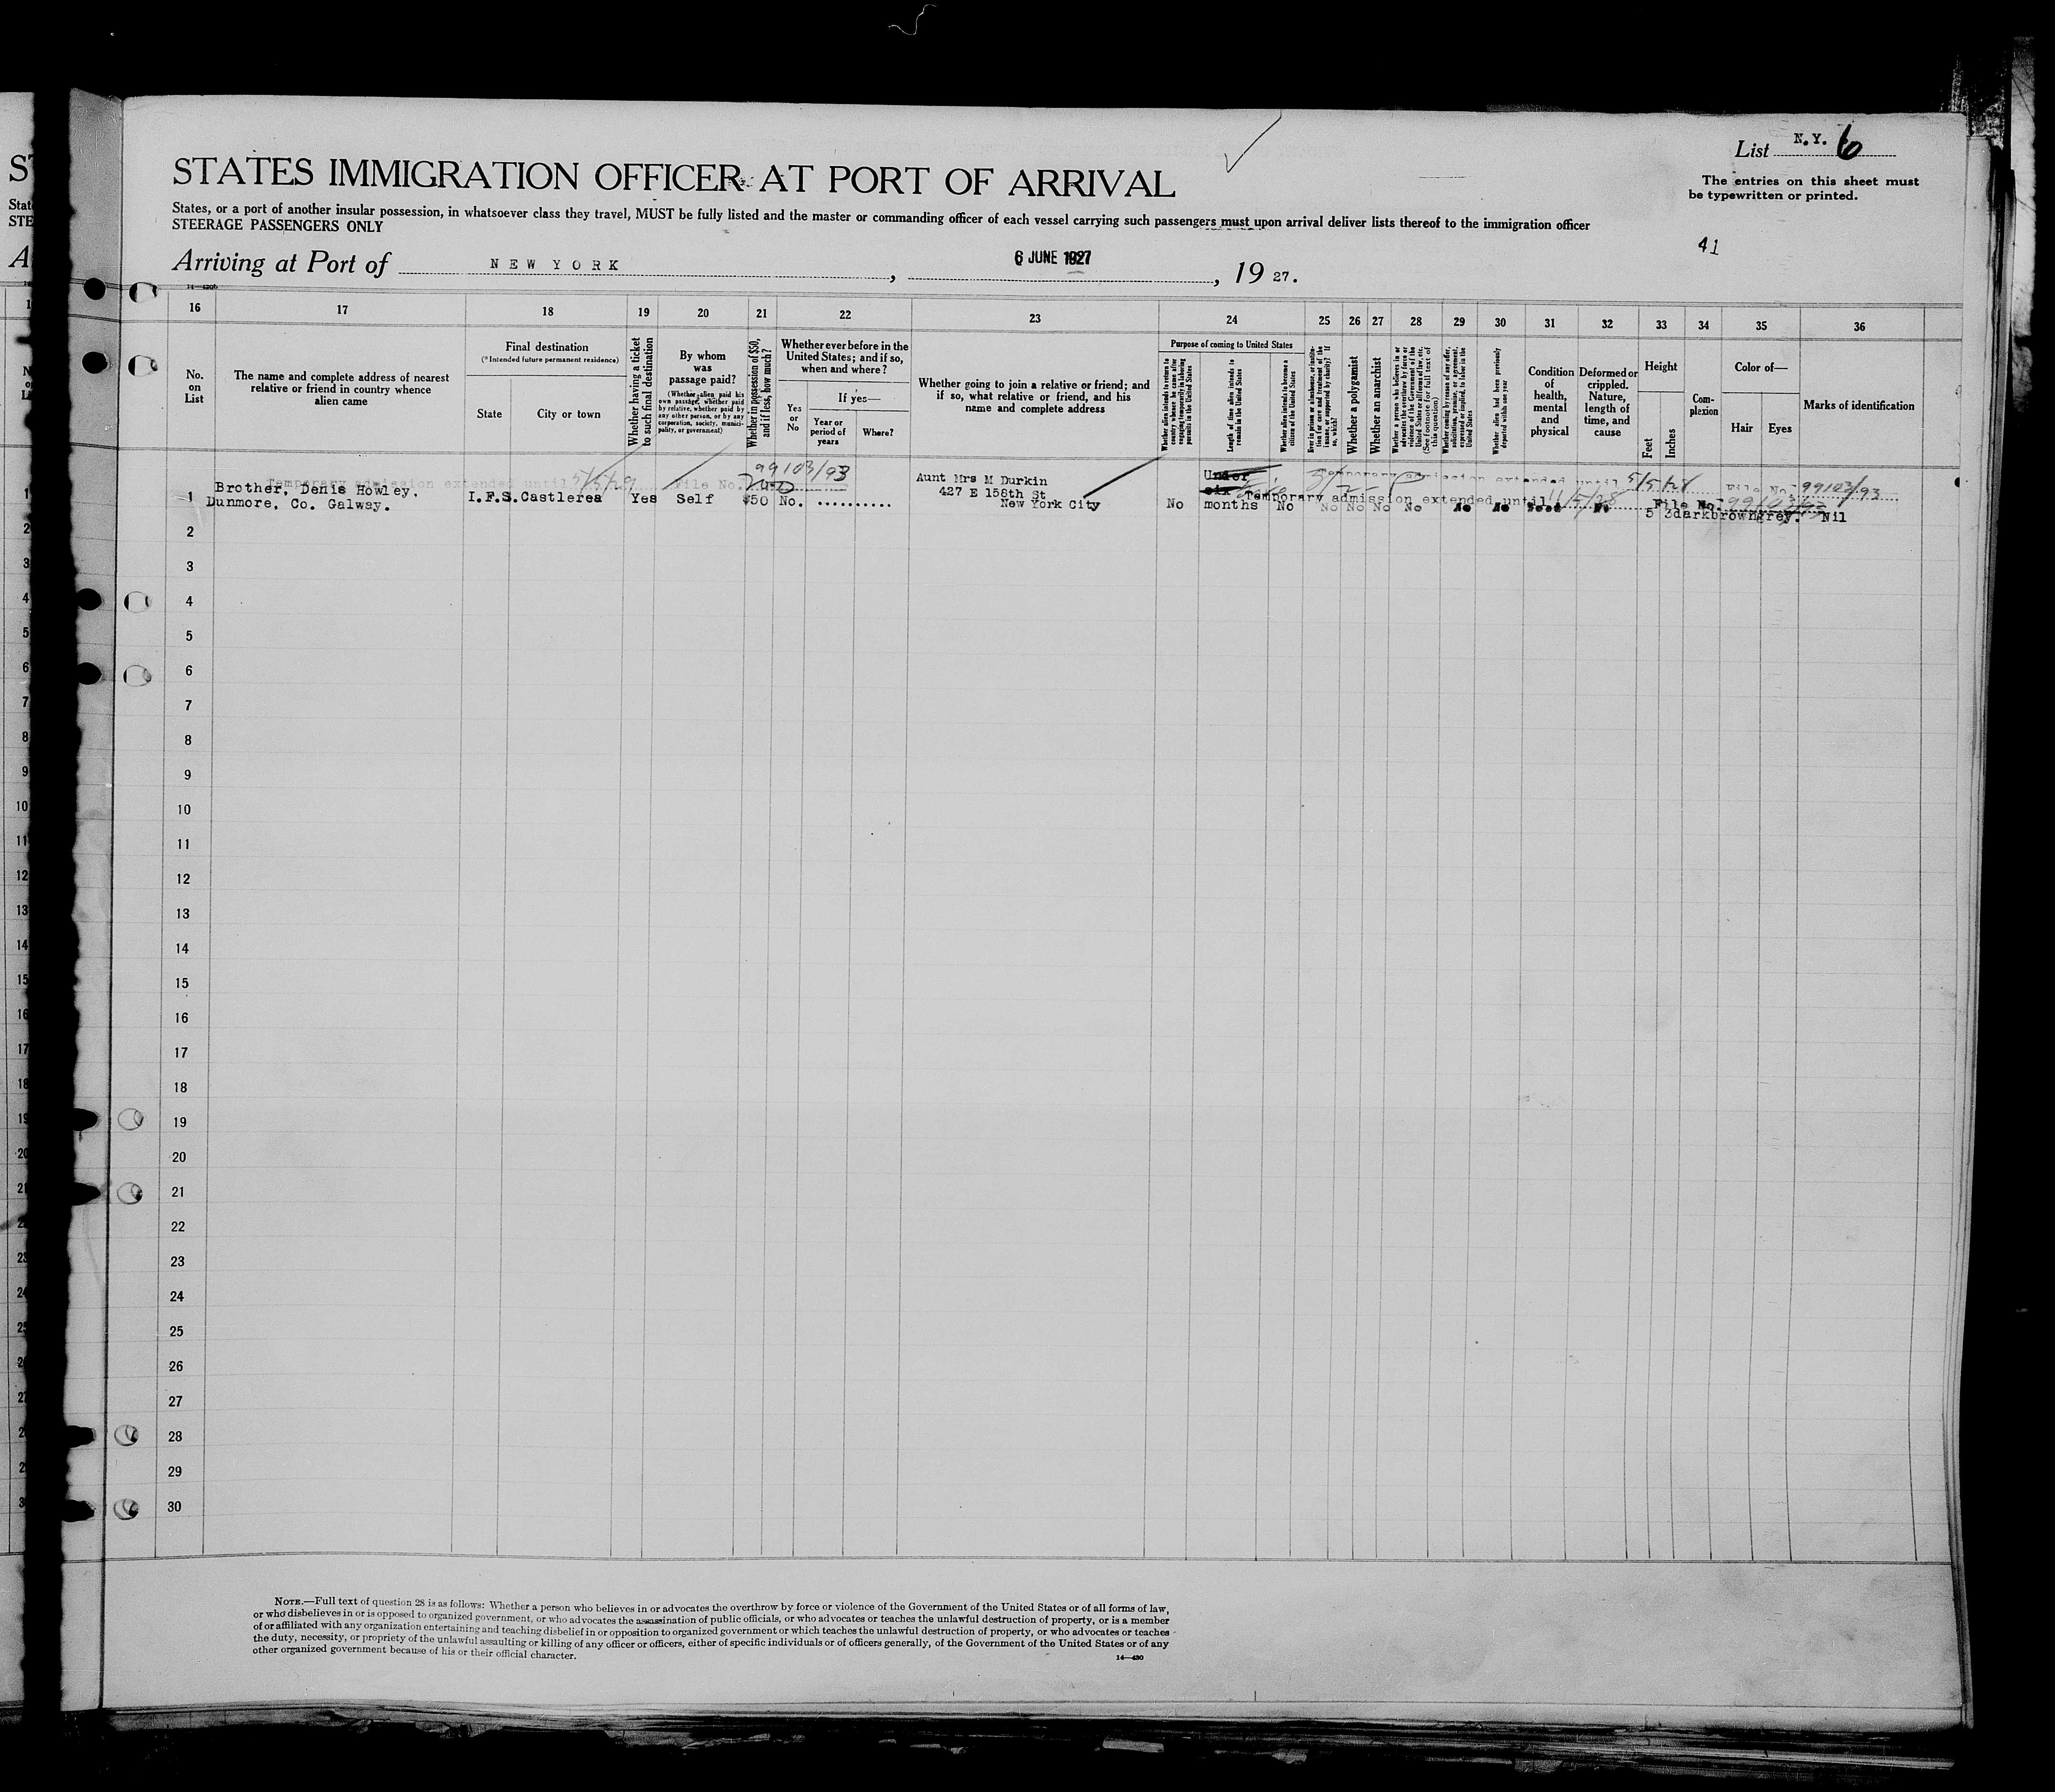 List N.Y. 6
The entries on this sheet must
be typewritten or printed.
STATES IMMIGRATION OFFICER AT PORT OF ARRIVAL
States, or a port of another insular possession, in whatsoever class they travel, MUST be fully listed and the master or commanding officer of each vessel carrying such passengers must upon arrival deliver lists thereof to the immigration officer
STEERAGE PASSENGERS ONLY
41
Arriving at Port of NEW YORK, 6 JUNE 1927, 19 27.
16 17 18 19 20 21 22 23 24 25 26 27 28 29 30 31 32 33 34 35 36
No.
on
List
The name and complete address of nearest
relative or friend in country whence
alien came
Final destination
(*Intended future permanent residence)
State
City or town
Whether having a ticket
to such final destination
By whom
was
passage paid?
(Whether alien paid his
own passage, whether paid
by relative, whether paid by
any other person, or by any
corporation, society, munici-
pality, or government)
Whether in possession of $50,
and if less, how much?
Whether ever before in the
United States; and if so,
when and where?
Yes
or
No
If yes—
Year or
period of
years
Where?
Whether going to join a relative or friend; and
if so, what relative or friend, and his
name and complete address
Purpose of coming to United States
Whether alien intends to return to
country whence he came after
engaging temporarily in laboring
pursuits in the United States
Length of time alien intends to
remain in the United States
Whether alien intends to become a
citizen of the United States
Ever in prison or almshouse, or institu-
tion for care and treatment of the
insane, or supported by charity? If
so, which?
Whether a polygamist
Whether an anarchist
Whether a person who believes in or
advocates the overthrow by force or
violence of the Government of the
United States or all forms of law, etc.
(See footnote for full text of
this question)
Whether coming by reason of any offer,
solicitation, promise, or agreement,
expressed or implied, to labor in the
United States
Whether alien had been previously
deported within one year
Condition
of
health,
mental
and
physical
Deformed or
crippled.
Nature,
length of
time, and
cause
Height
Feet
Inches
Com-
plexion
Color of—
Hair
Eyes
Marks of identification
99103/93
Temporary admission extended until 5/5/29 File No.
Temporary admission extended until 5/5/28 File No. 99103/93
Temporary admission extended until 11/5/28 File No. 99103/93
1 Brother, Denis Howley,
Dunmore, Co. Galway.
I.F.S. Castlerea Yes Self $50 No. ..........
Aunt Mrs M Durkin
427 E 158th St
New York City
No
Under
six
months
No No No No No No No No
5 3 dark brown grey. Nil
2
3
4
5
6
7
8
9
10
11
12
13
14
15
16
17
18
19
20
21
22
23
24
25
26
27
28
29
30
NOTE.—Full text of question 28 is as follows: Whether a person who believes in or advocates the overthrow by force or violence of the Government of the United States or of all forms of law,
or who disbelieves in or is opposed to organized government, or who advocates the assassination of public officials, or who advocates or teaches the unlawful destruction of property, or is a member
of or affiliated with any organization entertaining and teaching disbelief in or opposition to organized government or which teaches the unlawful destruction of property, or who advocates or teaches
the duty, necessity, or propriety of the unlawful assaulting or killing of any officer or officers, either of specific individuals or of officers generally, of the Government of the United States or of any
other organized government because of his or their official character.
14—430